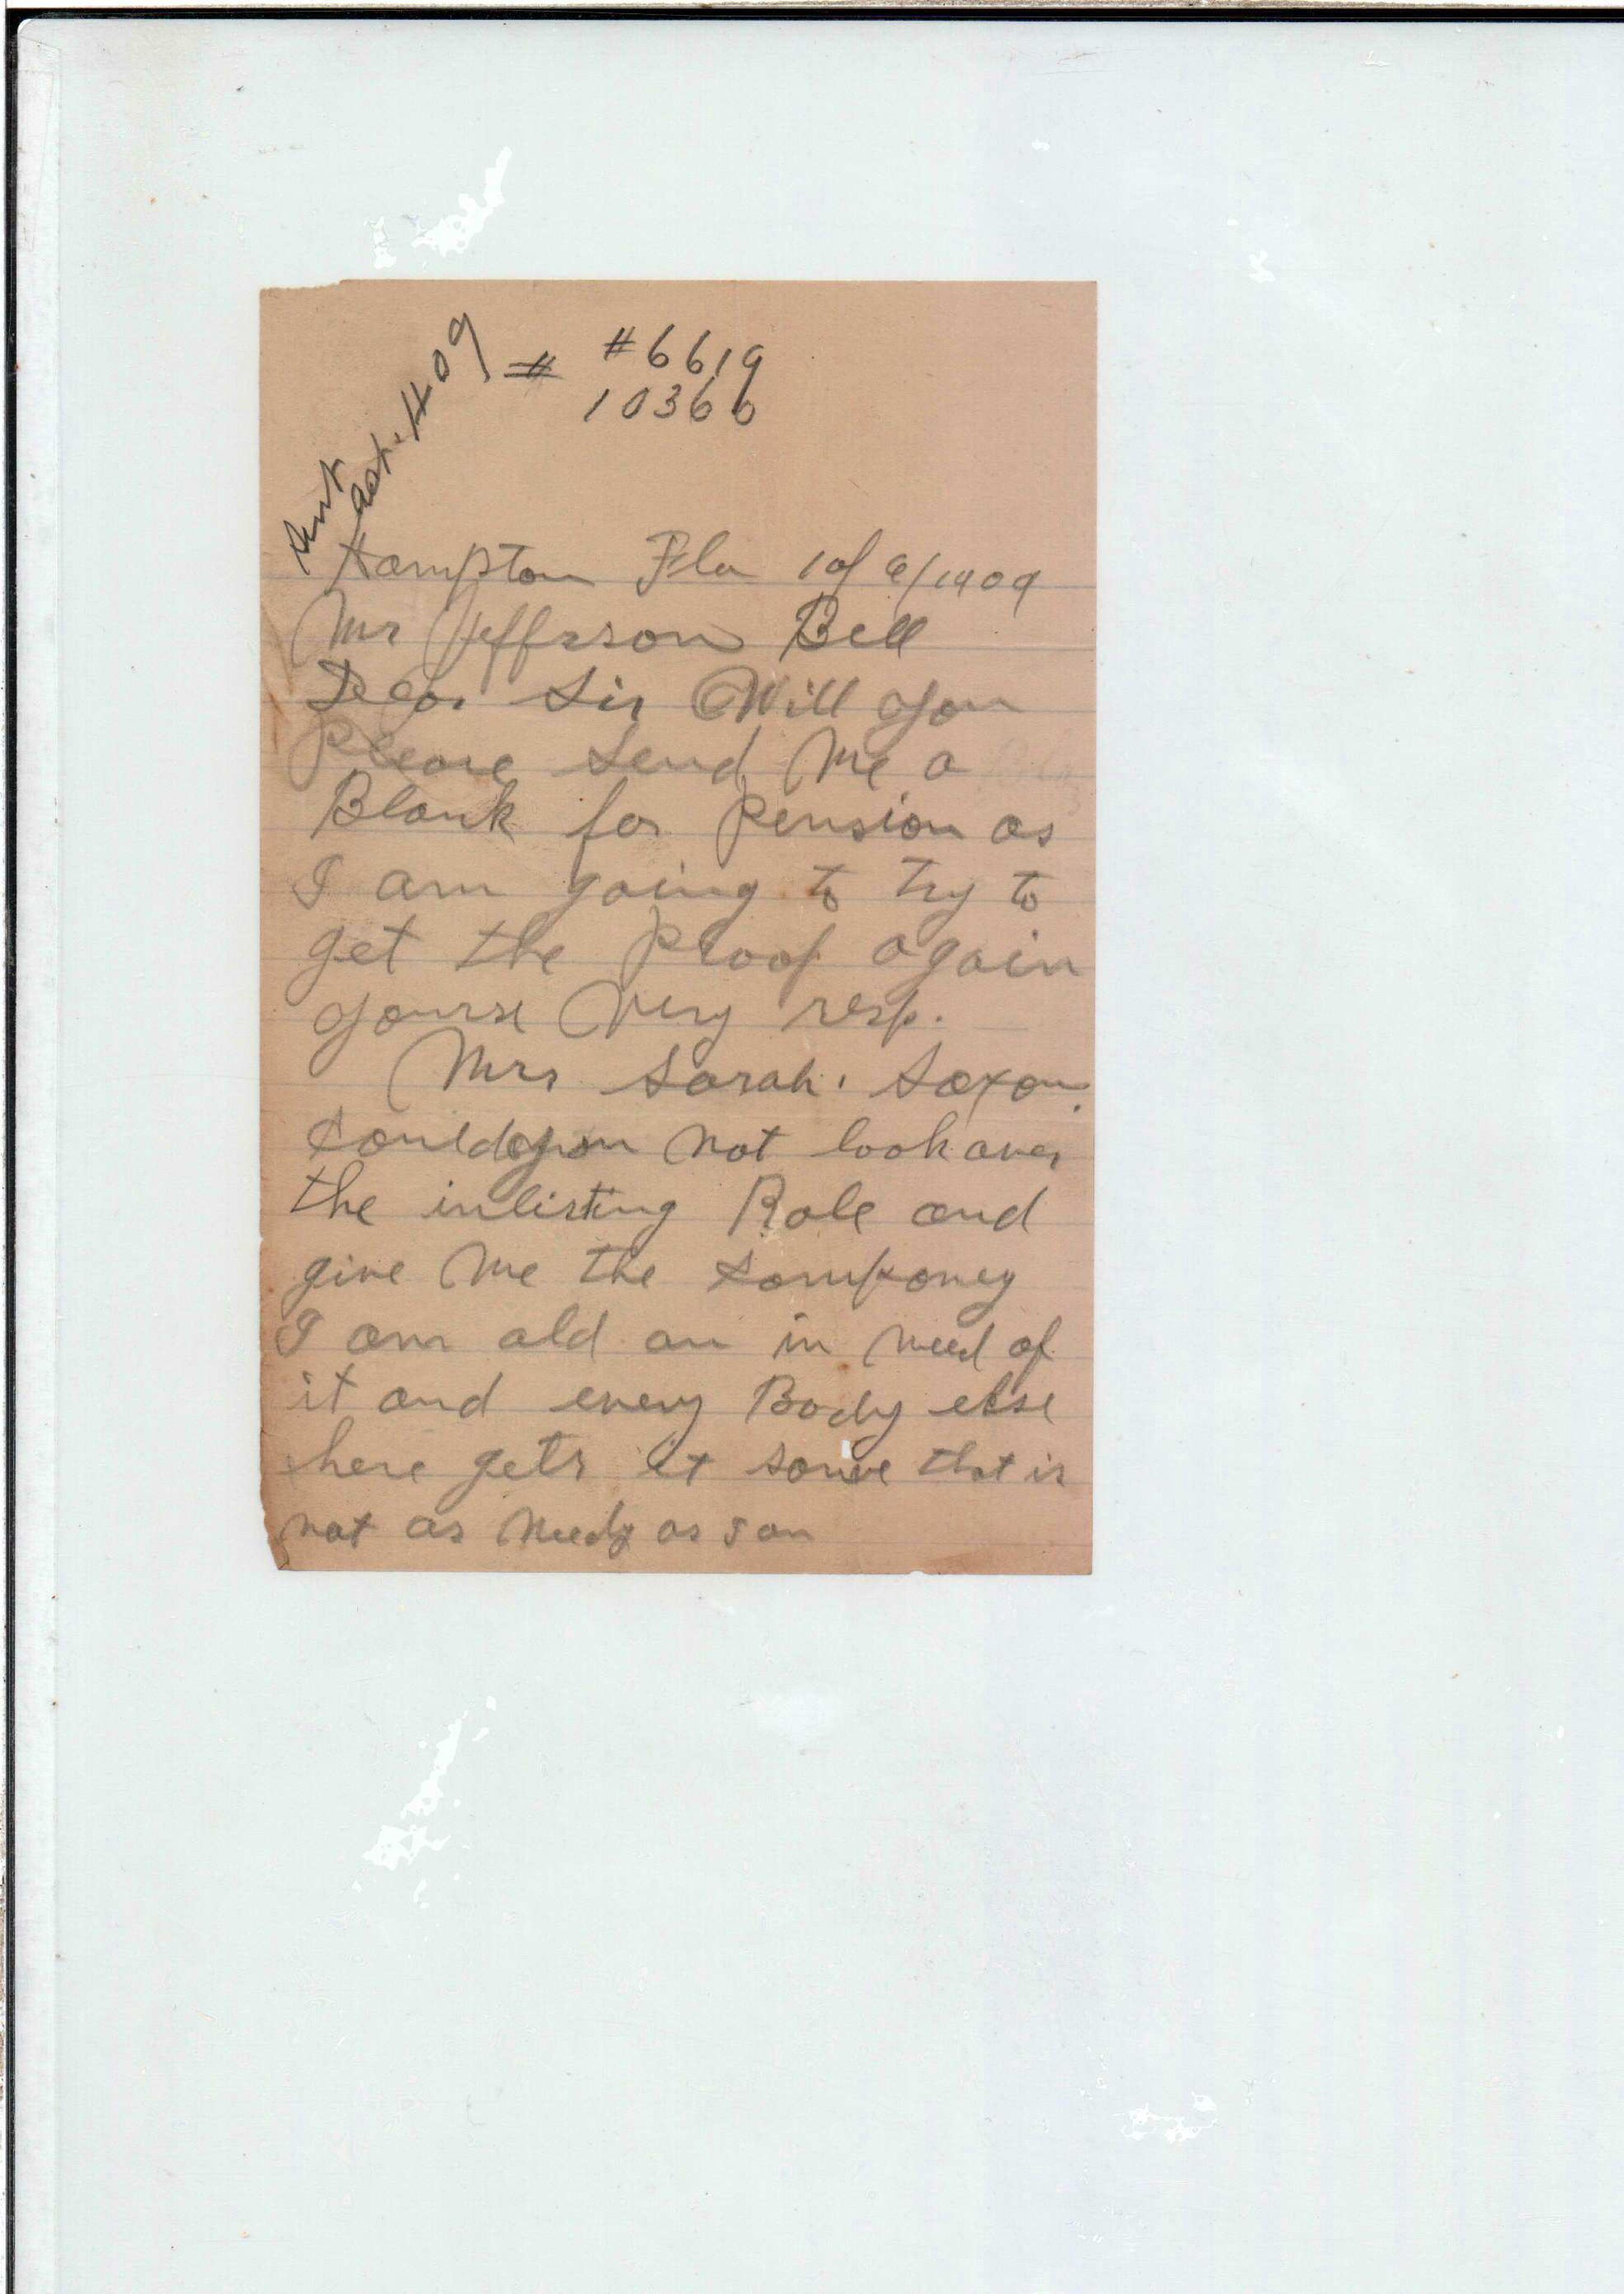 # #6619
10366
Sent
Oct. 11-09
Hampton Fla 1 of 6/1909
Mr Jeffrson Bell
Dear Sir Will you
Please Send Me a
Blank for Pension as
I am going to try to
get the Proof again
yourse Very resp.
Mrs Sarah. Saxon.
Could you not look over
the inlisting Role and
give Me the Company
I am old an in need of
it and every Body else
here gets it some that is
not as Needy as I an